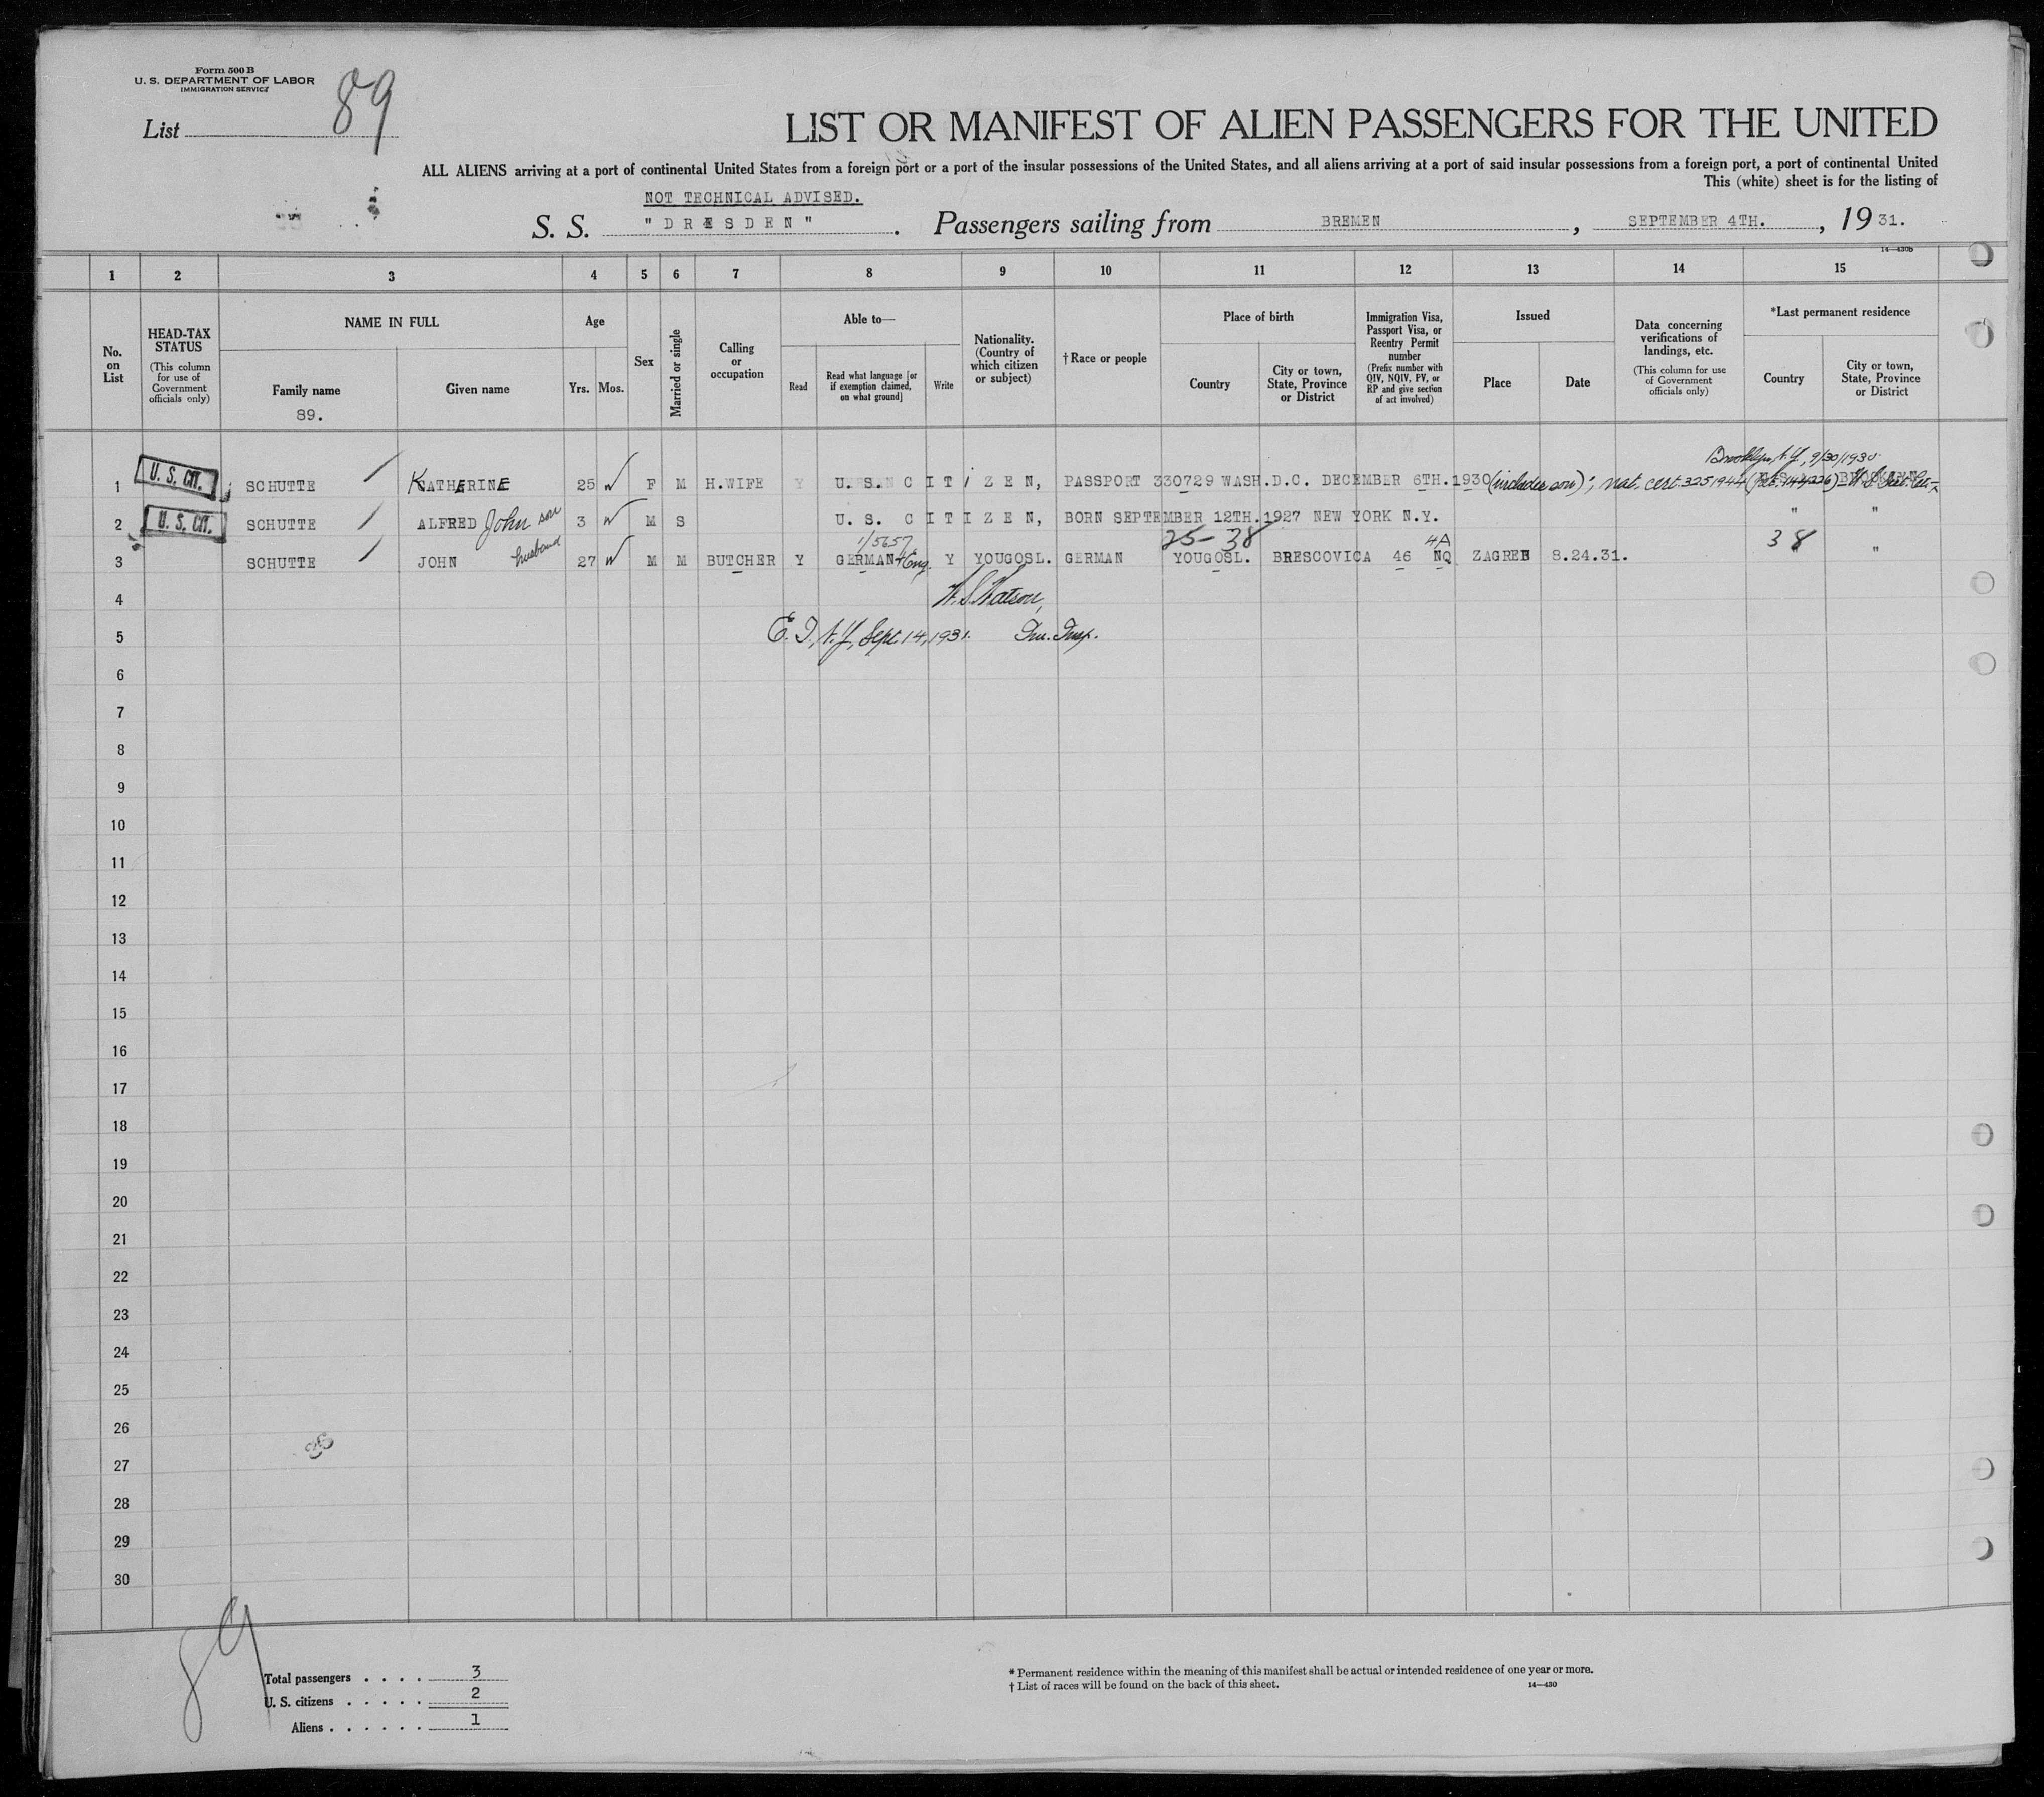 Form 500 B
U. S. DEPARTMENT OF LABOR
IMMIGRATION SERVICE
List 89
LIST OR MANIFEST OF ALIEN PASSENGERS FOR THE UNITED
ALL ALIENS arriving at a port of continental United States from a foreign port or a port of the insular possessions of the United States, and all aliens arriving at a port of said insular possessions from a foreign port, a port of continental United
This (white) sheet is for the listing of
NOT TECHNICAL ADVISED.
S. S. " DRESDEN ". Passengers sailing from BREMEN, SEPTEMBER 4TH., 19 31.
14—430b
1 2 3 4 5 6 7 8 9 10 11 12 13 14 15
No. on List
HEAD-TAX STATUS
(This column for use of Government officials only)
NAME IN FULL
Family name
89.
Given name
Age
Yrs. Mos.
Sex
Married or single
Calling or occupation
Able to—
Read
Read what language [or if exemption claimed, on what ground]
Write
Nationality. (Country of which citizen or subject)
† Race or people
Place of birth
Country
City or town, State, Province or District
Immigration Visa, Passport Visa, or Reentry Permit number
(Prefix number with QIV, NQIV, PV, or RP and give section of act involved)
Issued
Place
Date
Data concerning verifications of landings, etc.
(This column for use of Government officials only)
*Last permanent residence
Country
City or town, State, Province or District
Brooklyn, N.Y., 9/30/1930
1 U. S. CIT. SCHUTTE KATHERINE 25 F M H.WIFE Y U. S. CITIZEN, PASSPORT 330729 WASH.D.C. DECEMBER 6TH.1930 (includes son); nat. cert. 3251944
2 U. S. CIT. SCHUTTE ALFRED John son 3 M S U. S. CITIZEN, BORN SEPTEMBER 12TH.1927 NEW YORK N.Y. " "
1/5657 25-38 4A 38
3 SCHUTTE JOHN husband 27 M M BUTCHER Y GERMAN+Eng. Y YOUGOSL. GERMAN YOUGOSL. BRESCOVICA 46 NQ ZAGREB 8.24.31. "
4 W. S. Watson,
5 E. I., N.Y., Sept. 14, 1931. Im. Insp.
6
7
8
9
10
11
12
13
14
15
16
17
18
19
20
21
22
23
24
25
26
27
28
29
30
89
Total passengers . . . . 3
U. S. citizens . . . . . 2
Aliens . . . . . . 1
* Permanent residence within the meaning of this manifest shall be actual or intended residence of one year or more.
† List of races will be found on the back of this sheet.
14—430